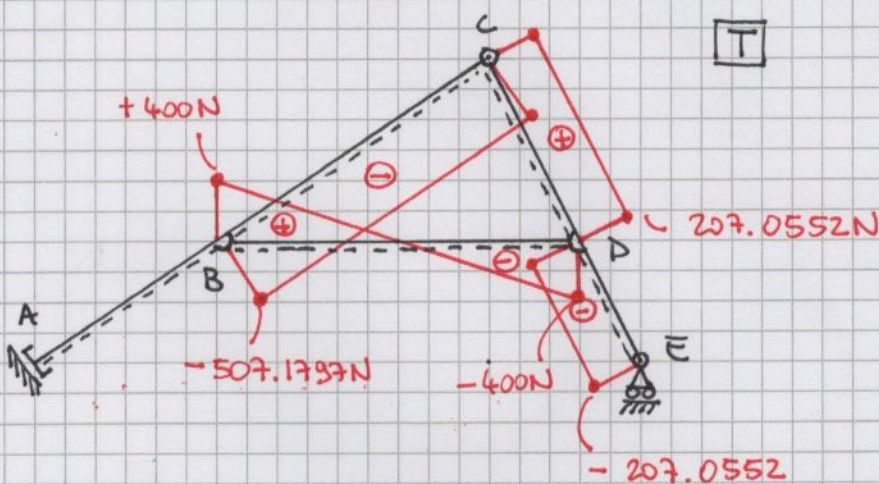 C
T
+400N
⊕
⊖
⊕
207.0552N
B
⊖
D
⊖
A
- 507.1797N
-400N
E
- 207.0552